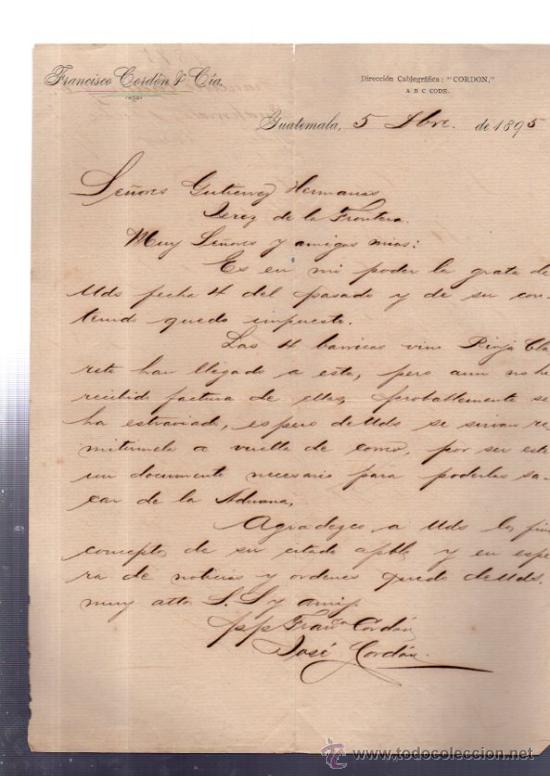 Francisco Cordón & Cía.
Dirección Cablegráfica: "CORDON,"
A B C CODE.
Guatemala, 5 de 1895
Señores Gutierrez Hermanos
Jerez de la Frontera
Muy Señores y amigos mios:
Es en mi poder la grata de
Uds fecha 4 del pasado y de su con-
tenido quedo impuesto.
Las 4 barricas vino Rioja Cla
rete han llegado a esta, pero aun no he
recibido factura de ellas, probablemente se
ha estraviado, espero de Uds se sirvan re
mitirmela a vuelta de correo, por ser este
un documento necesario para poderlas sa-
car de la Aduana,
Agradezco a Uds los finos
conceptos de su citada apble y en espe
ra de noticias y ordenes quedo de Uds.
muy atto S. S. y amigo
pp Franco Cordón
José Cordón.
todocoleccion.net